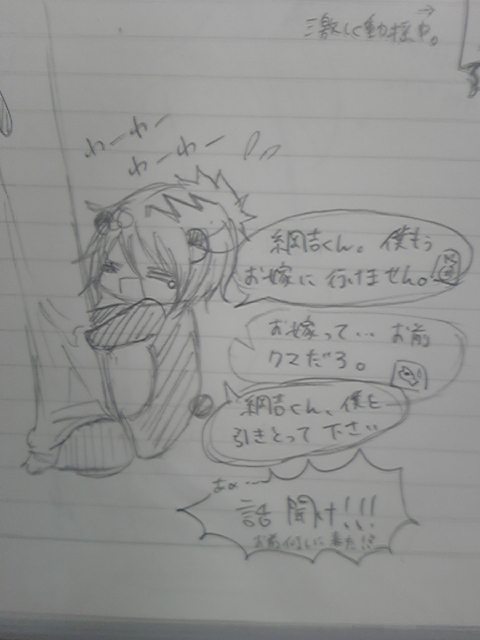 →
激しく動揺中。
わーわー
わーわー
綱吉くん。僕もう
お嫁に行けません。
お嫁って… お前
クマだろ。
綱吉くん、僕を
引きとって下さい
話聞け!!!
お前何しに来た!?